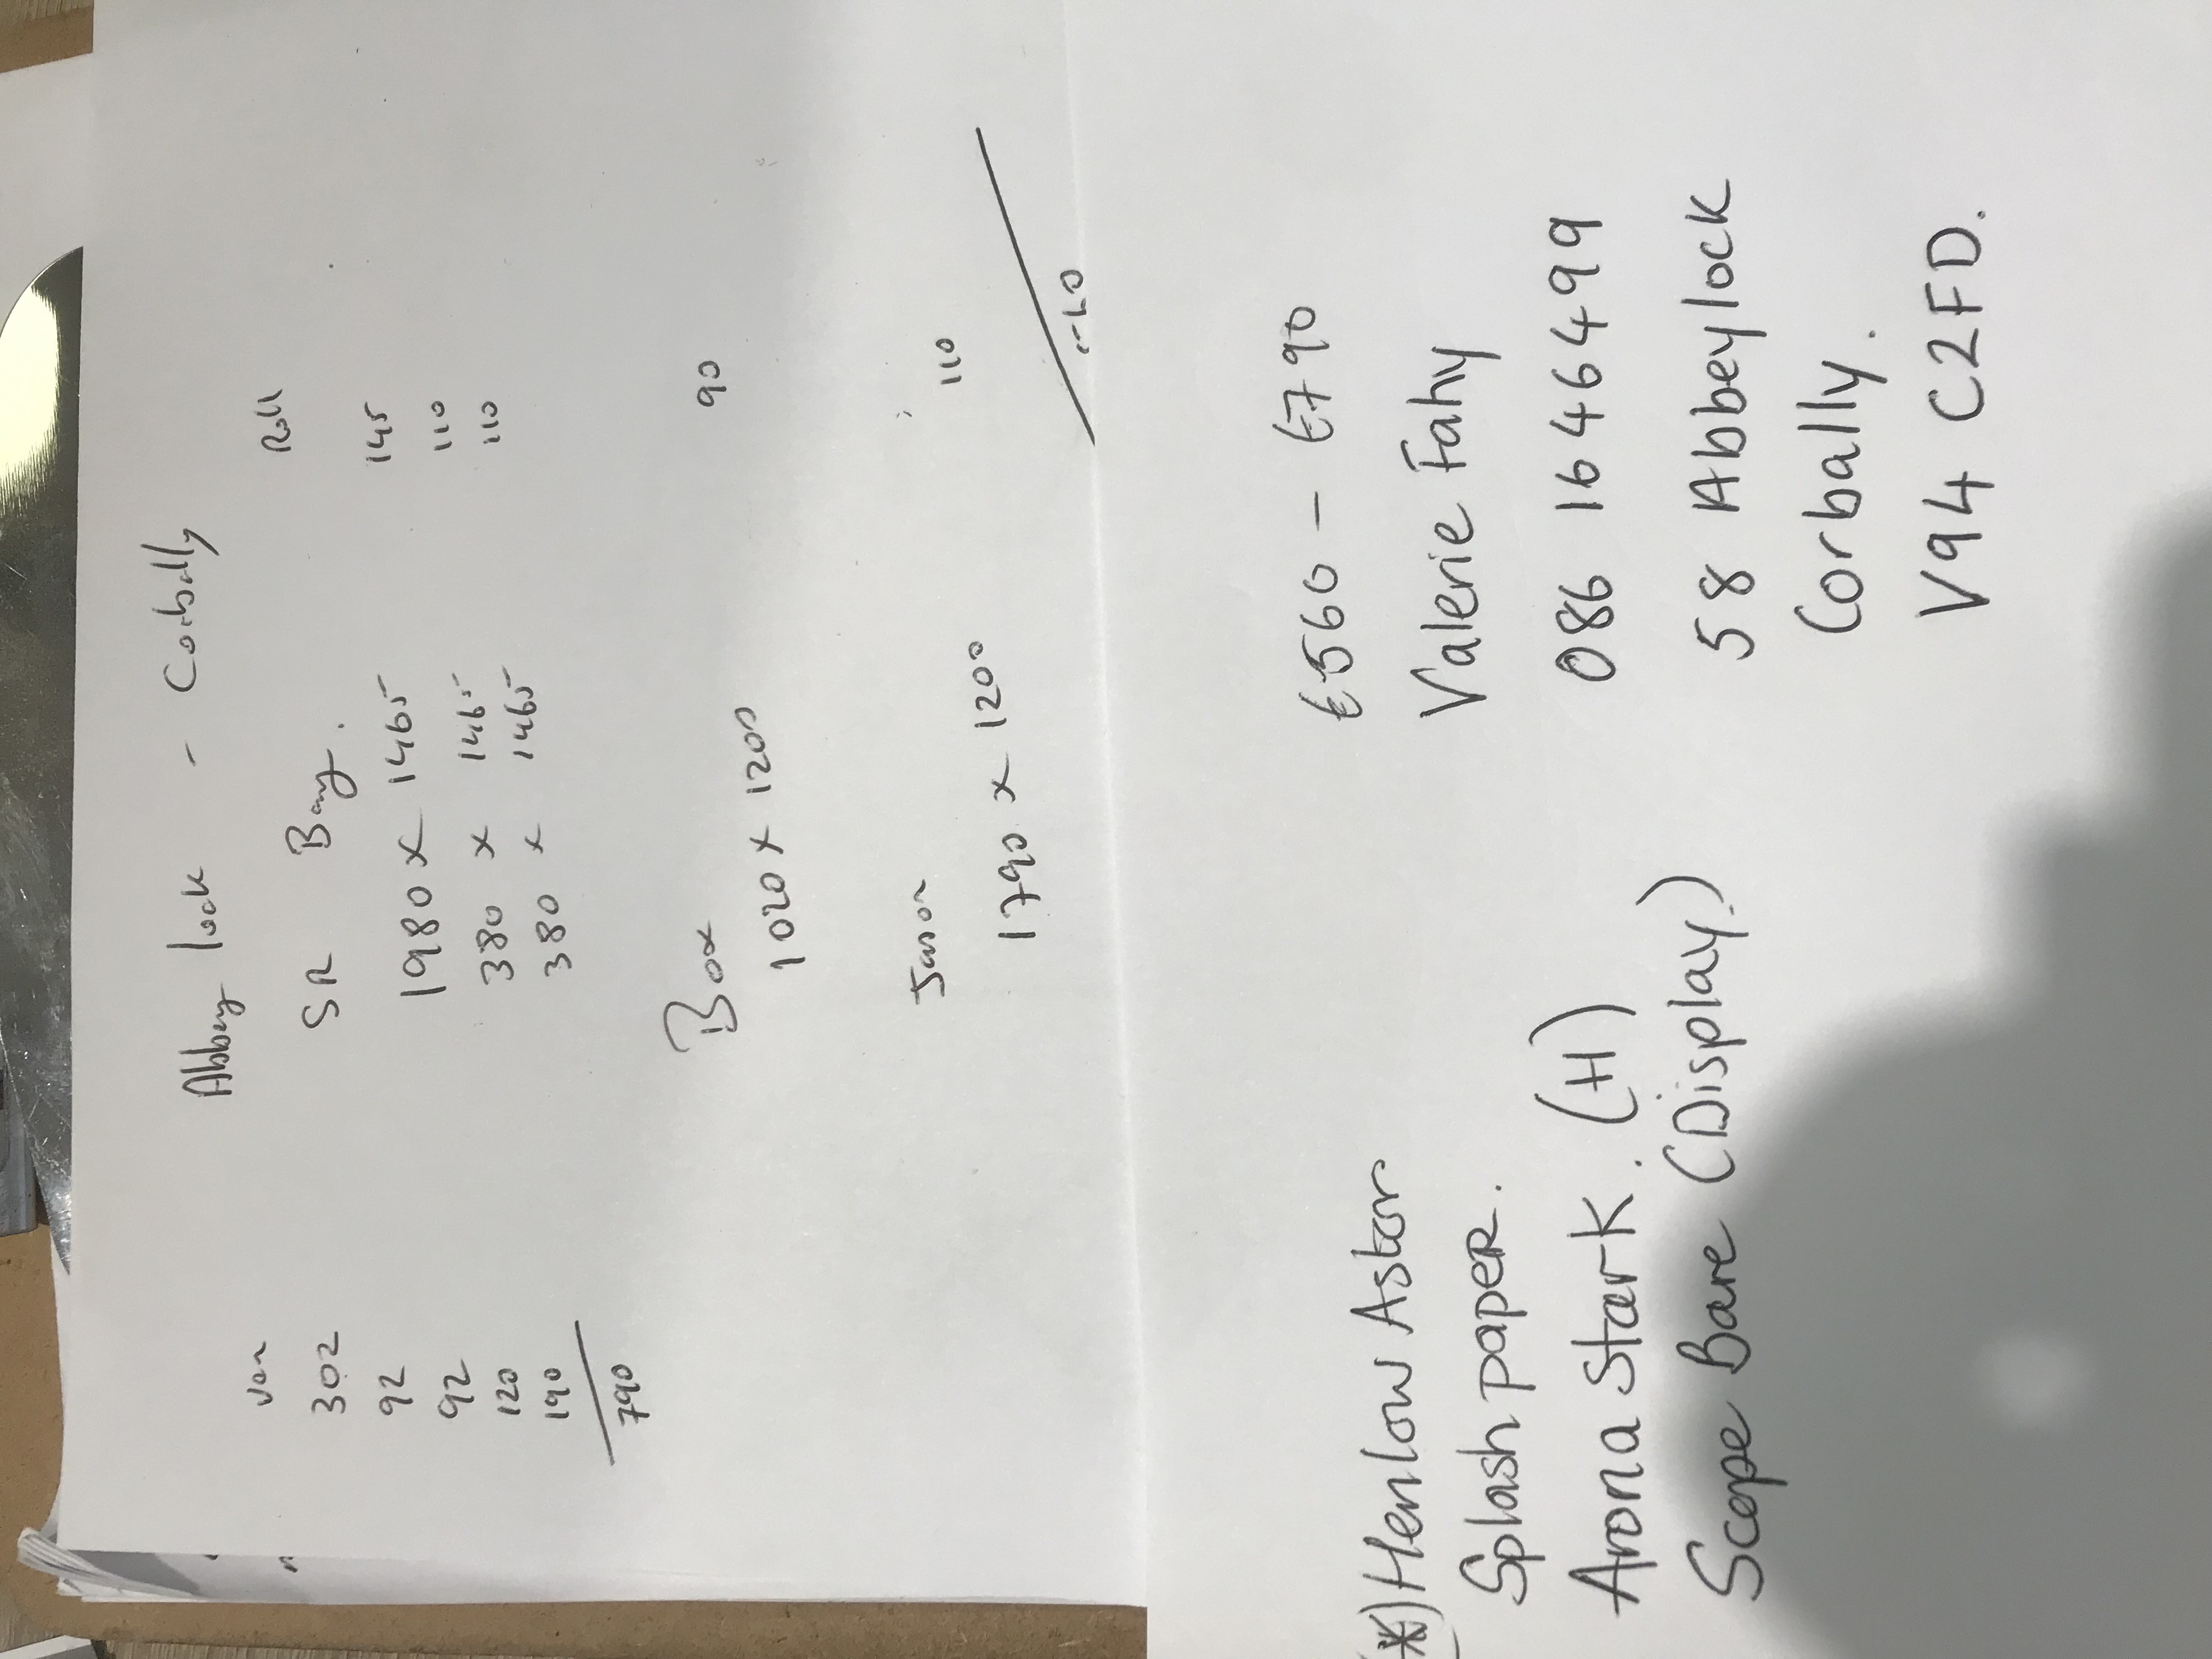 Abbey lock - Corbally
Van SR Bay. Roll
302 1980 x 1465 145
92 380 x 1465 110
92 380 x 1465 110
120
190
790
Box 90
1020 x 1200
Jason 110
1790 x 1200
€560 - €790
(*) Henlow Astor Valerie Fahy
Splash paper. 086 1646499
Arona Stark. (H) 58 Abbeylock
Scope Bare (Display.) Corbally.
V94 C2FD.